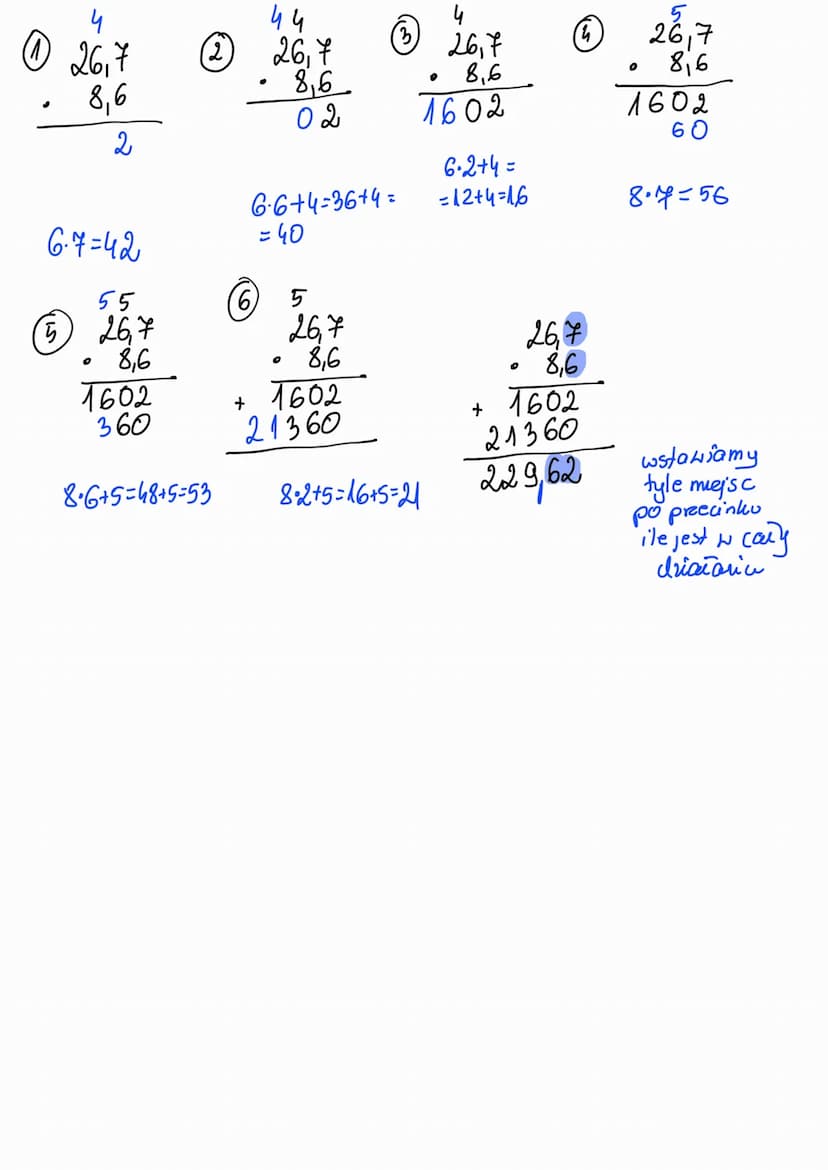 ① 4
26,7
· 8,6
2
6·7=42
② 4 4
26,7
· 8,6
0 2
6·6+4=36+4=
=40
③ 4
26,7
· 8,6
1602
6·2+4=
=12+4=16
④ 5
26,7
· 8,6
1602
60
8·7=56
⑤ 5 5
26,7
· 8,6
1602
360
8·6+5=48+5=53
⑥ 5
26,7
· 8,6
+ 1602
21360
8·2+5=16+5=21
26,7
· 8,6
+ 1602
21360
229,62
wstawiamy
tyle miejsc
po przecinku
ile jest w całym
działaniu